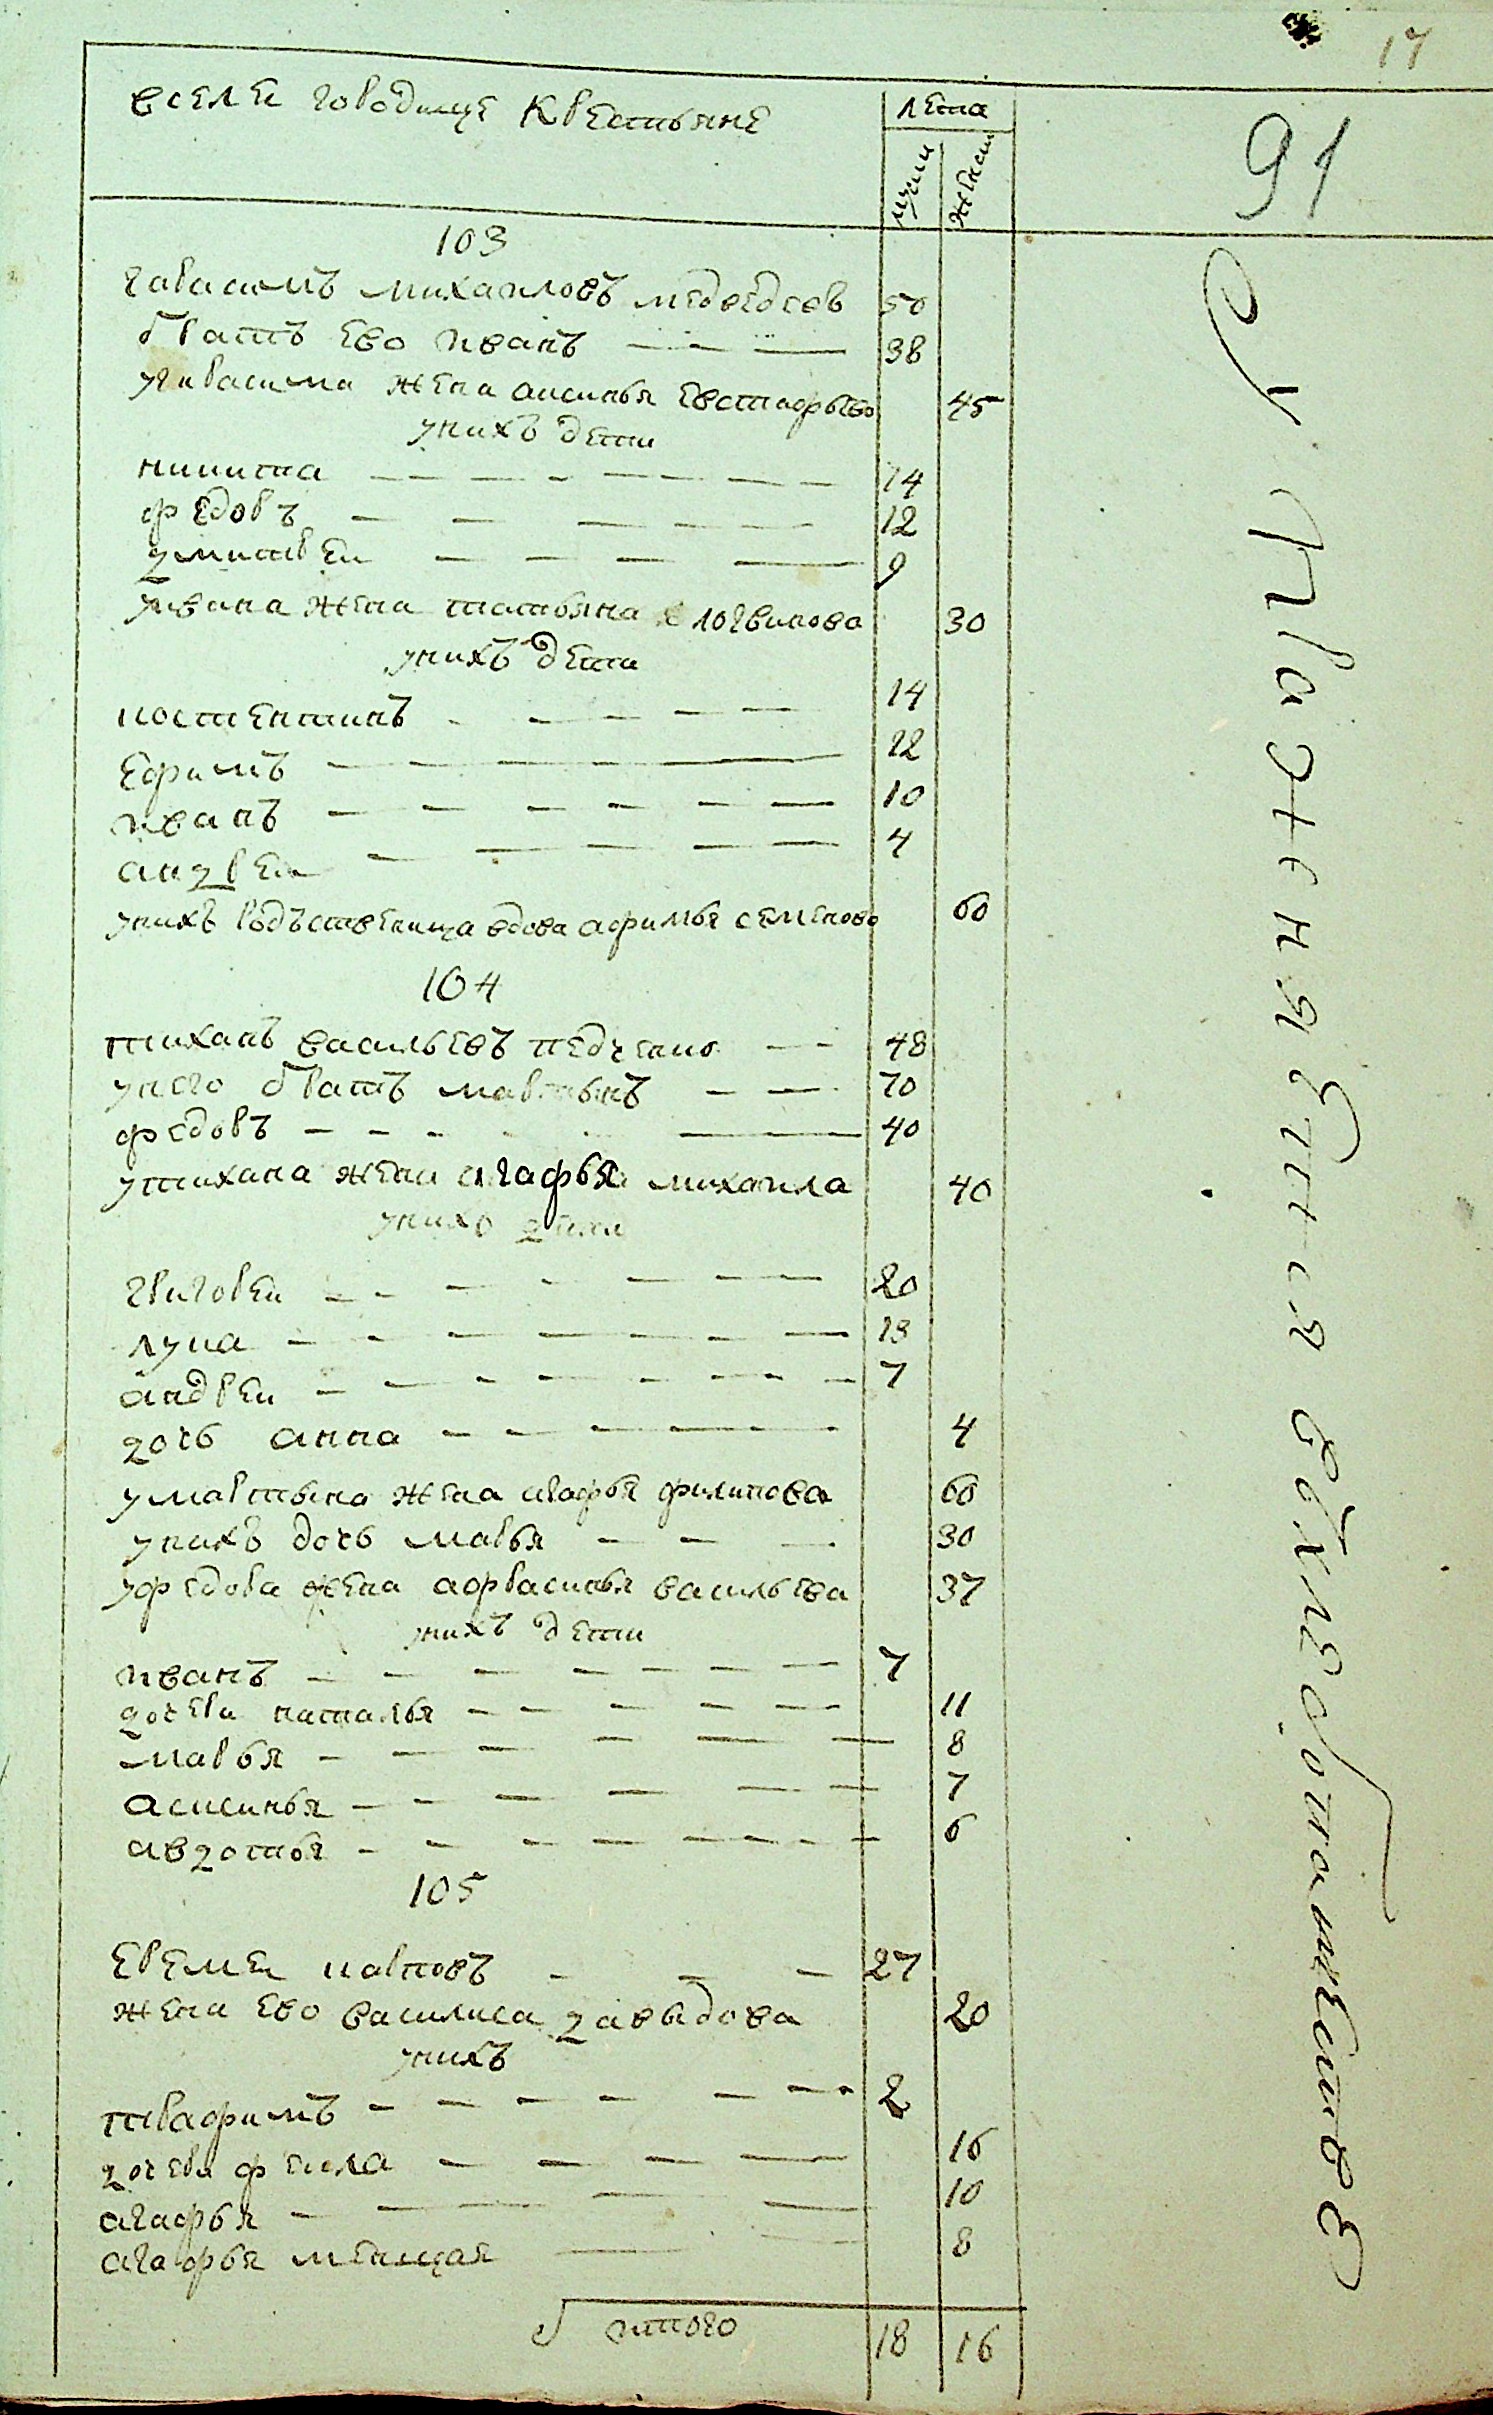 17
91
вселе городище крестьяне
лета
мужи
женст
103
гарасимъ михаиловъ медведевъ 50
братъ ево иванъ 38
угарасима жена аксинья евстафьева 45
унихъ дети
никита 14
федоръ 12
дмитреи 9
уивана жена татьяна логвинова 30
унихъ дети
костентинъ 14
ефимъ 12
иванъ 10
андреи 4
унихъ родъственица вдова афимья семенова 60
104
тиханъ васильевъ недченко 48
унего братъ мартынъ 70
федоръ 40
утихана жена агафья михаила 40
унихъ дети
григореи 20
лука 13
андреи 7
дочь анна 4
умартына жена агафья филипова 60
унихъ дочь марья 30
уфедора жена афрасинья васильева 37
унихъ дети
иванъ 7
дочери наталья 11
марья 8
аксинья 7
авдотья 6
105
еремеи карповъ 27
жена ево василиса давыдова 20
унихъ
трафимъ 2
дочери фекла 16
агафья 10
агафья меншая 8
итого 18 16